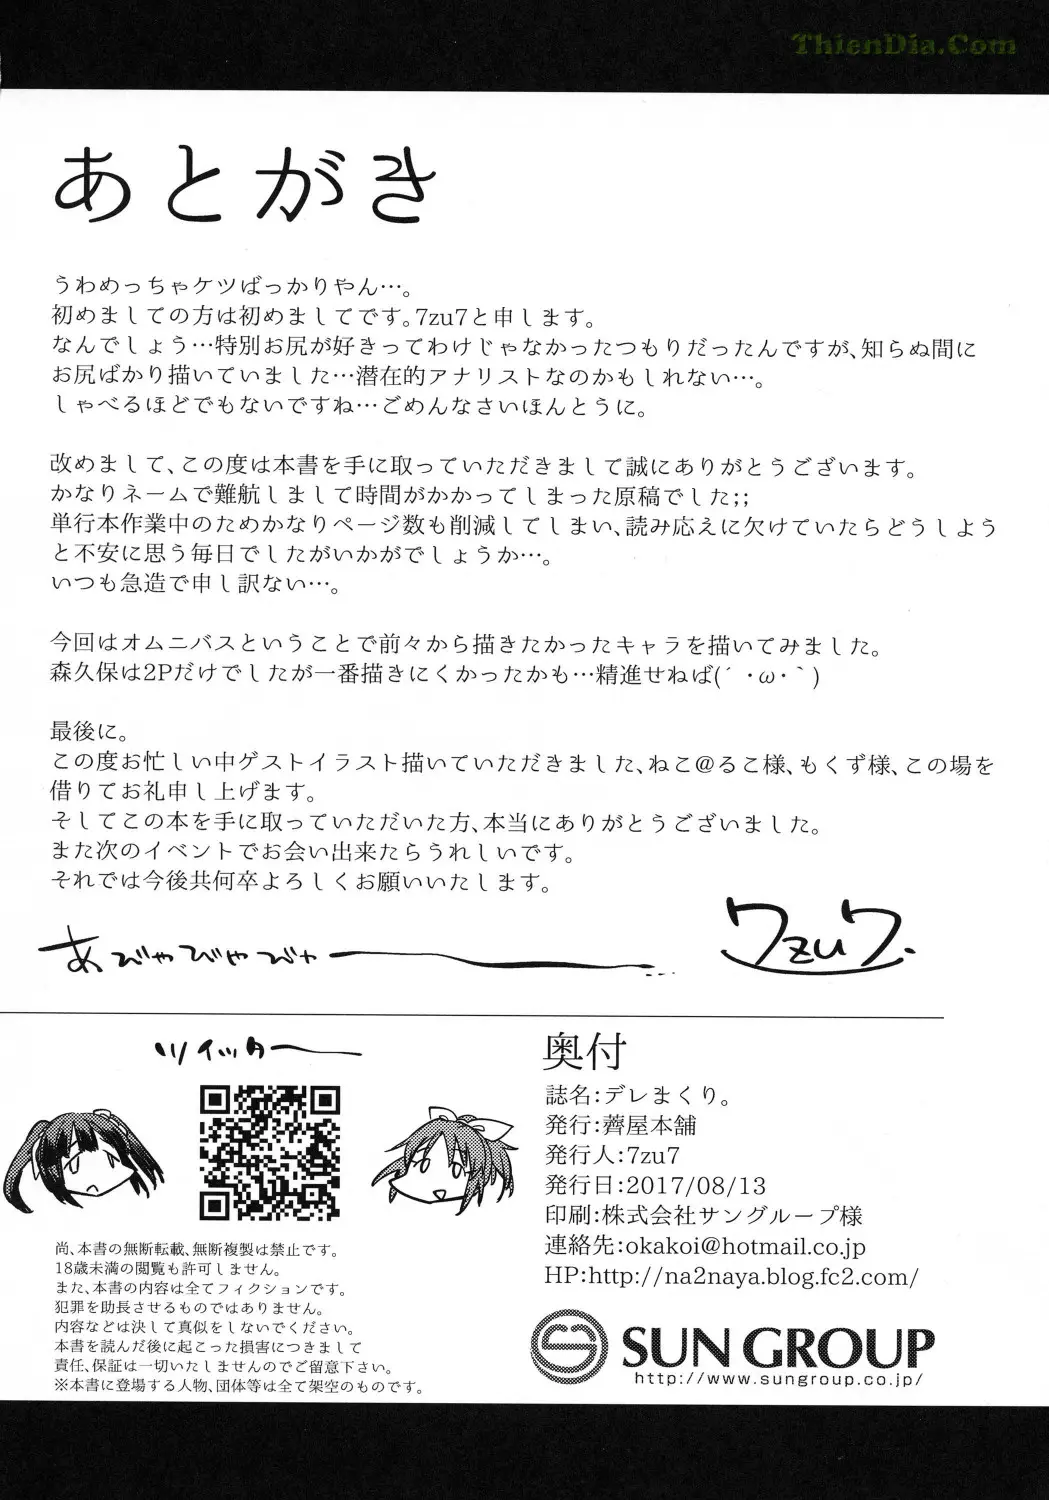 ThienDia.Com
あとがき
うわめっちゃケツばっかりやん…。
初めましての方は初めましてです。7zu7と申します。
なんでしょう…特別お尻が好きってわけじゃなかったつもりだったんですが、知らぬ間に
お尻ばかり描いていました…潜在的アナリストなのかもしれない…。
しゃべるほどでもないですね…ごめんなさいほんとうに。
改めまして、この度は本書を手に取っていただきまして誠にありがとうございます。
かなりネームで難航しまして時間がかかってしまった原稿でした;;
単行本作業中のためかなりページ数も削減してしまい、読み応えに欠けていたらどうしよう
と不安に思う毎日でしたがいかがでしょうか…。
いつも急造で申し訳ない…。
今回はオムニバスということで前々から描きたかったキャラを描いてみました。
森久保は2Pだけでしたが一番描きにくかったかも…精進せねば(´・ω・｀)
最後に。
この度お忙しい中ゲストイラスト描いていただきました、ねこ@るこ様、もくず様、この場を
借りてお礼申し上げます。
そしてこの本を手に取っていただいた方、本当にありがとうございました。
また次のイベントでお会い出来たらうれしいです。
それでは今後共何卒よろしくお願いいたします。
あびゃびゃびゃー
7zu7.
ツイッター
尚、本書の無断転載、無断複製は禁止です。
18歳未満の閲覧も許可しません。
また、本書の内容は全てフィクションです。
犯罪を助長させるものではありません。
内容などは決して真似をしないでください。
本書を読んだ後に起こった損害につきまして
責任、保証は一切いたしませんのでご留意下さい。
※本書に登場する人物、団体等は全て架空のものです。
奥付
誌名:デレまくり。
発行:薺屋本舗
発行人:7zu7
発行日:2017/08/13
印刷:株式会社サングループ様
連絡先:okakoi@hotmail.co.jp
HP:http://na2naya.blog.fc2.com/
SUN GROUP
http://www.sungroup.co.jp/